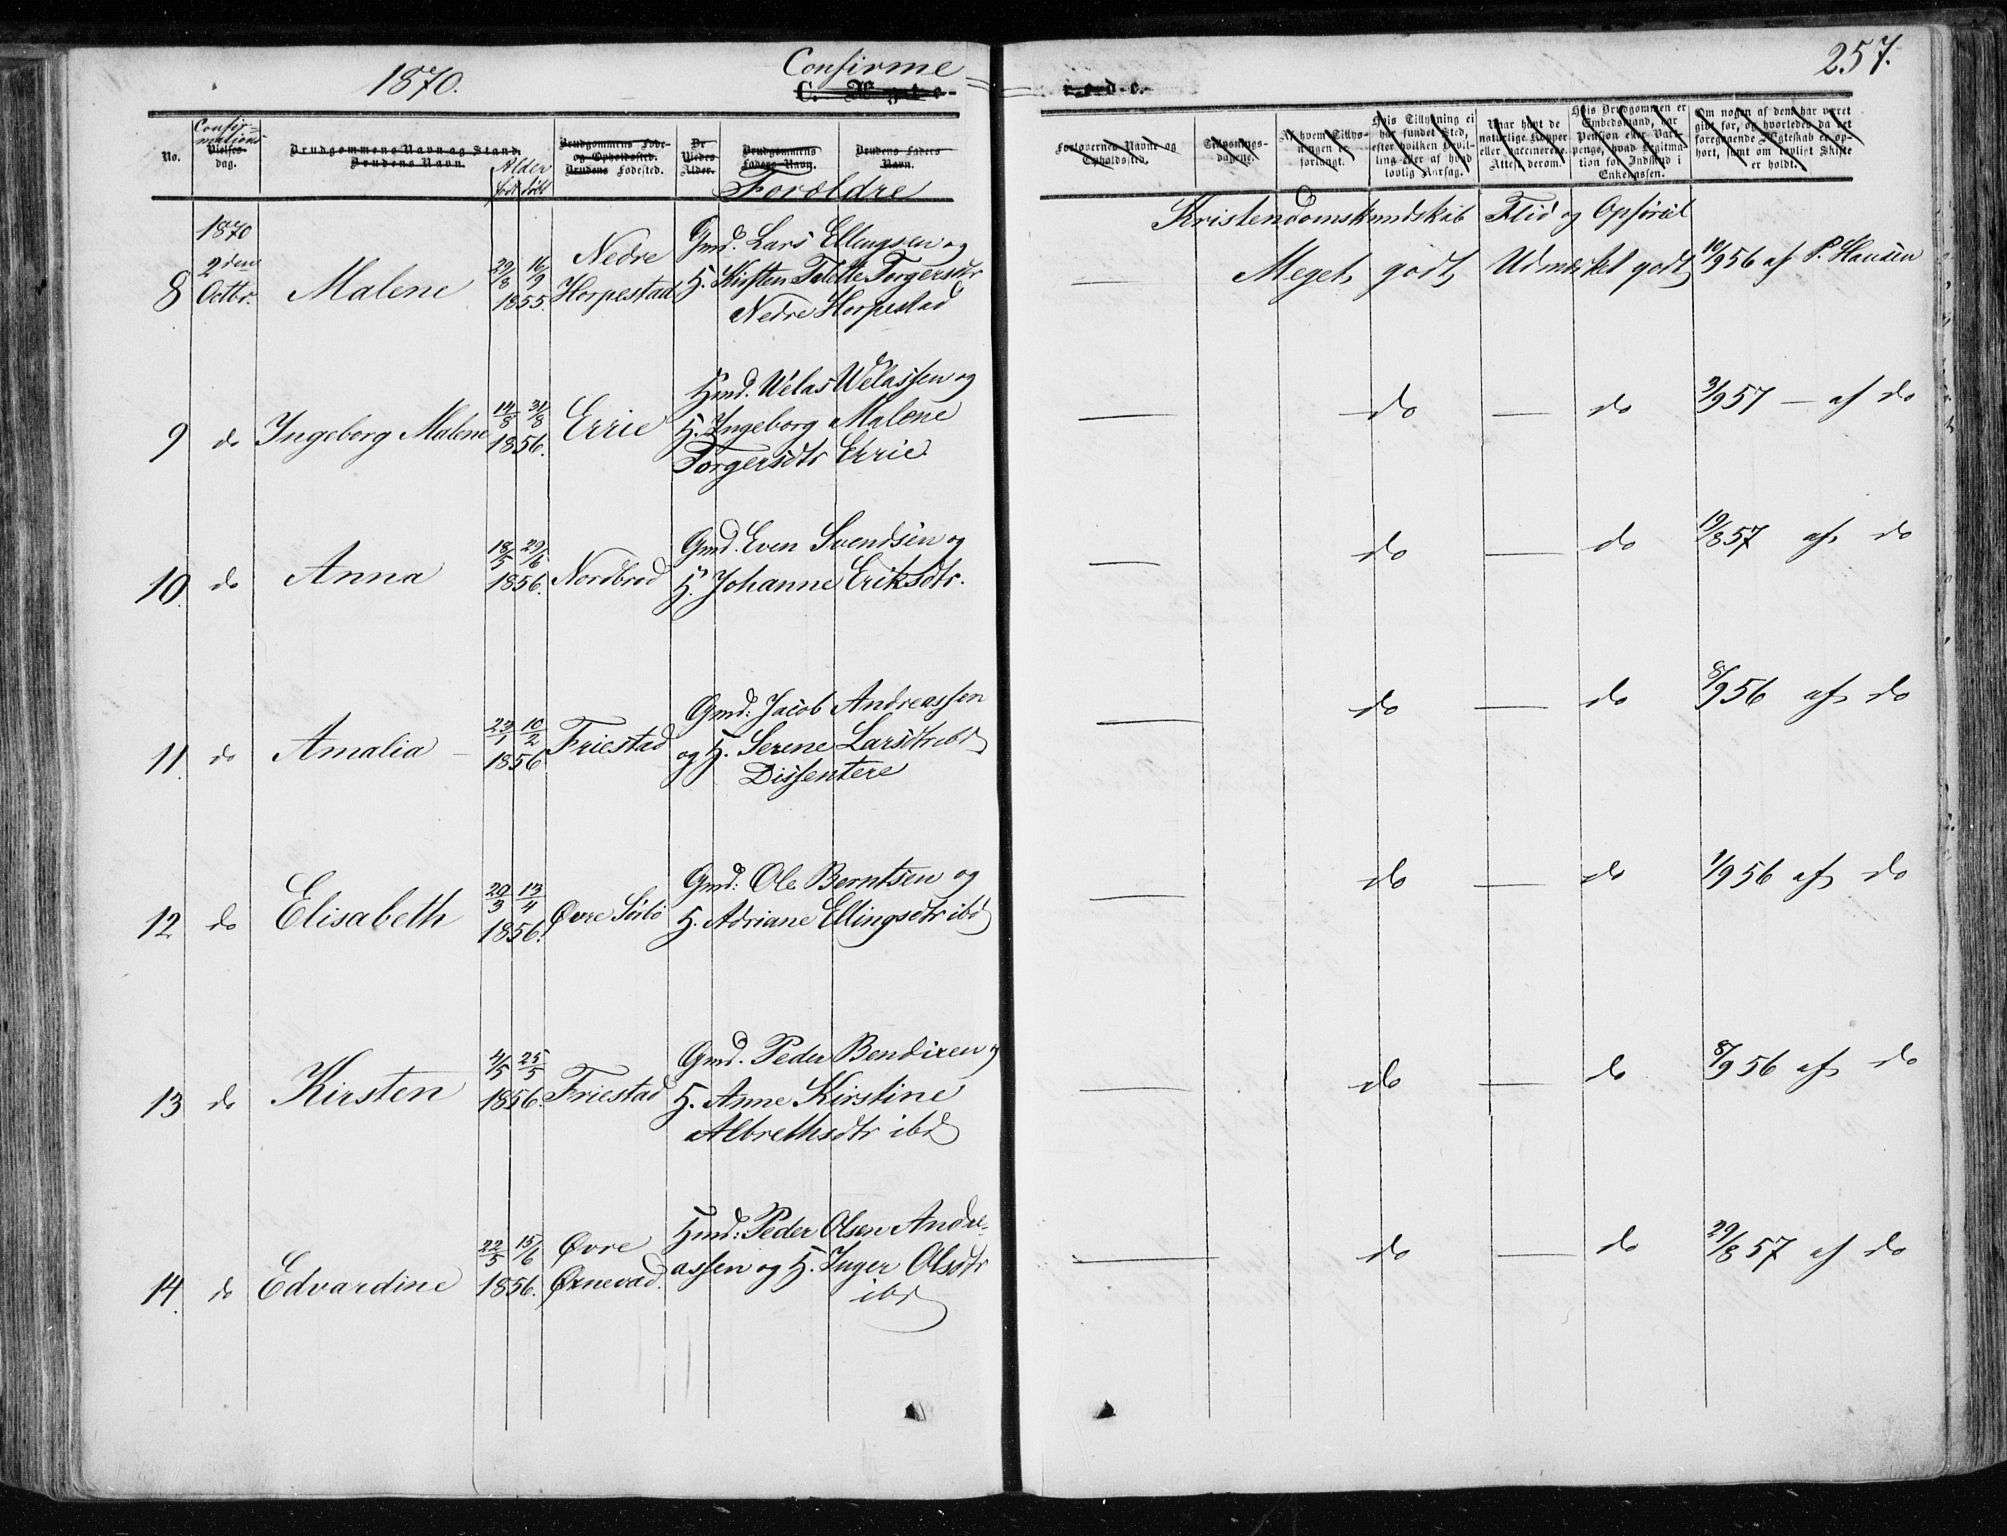 1870.
Confirme
257.
C. r e d e.
No.
Confir-
mations
Vielses-
dag.
Brudgommens Navn og Stand.
Brudens Navn.
Alder
født døbt
Brudgommens Føde-
og Opholdssted.
Brudens Fødested.
De
Viedes
Alder.
Brudgommens
Faders Navn.
Brudens Faders
Navn.
Forældre
Forlovernes Navne og
Opholdssted.
Tillysnings-
dagene.
Af hvem Tillys-
ningen er
forlangt.
Hvis Tillysning ei
har fundet Sted,
efter hvilken Bevil-
ling eller af hvad
lovlig Aarsag.
Naar havt de
naturlige Kopper
eller vaccinerede.
Attest derom.
Hvis Brudgommen er
Embedsmand, har
Pension eller Vart-
penge, hvad Legitima-
tion for Indskud i
Enkekassen.
Om nogen af dem har været
gift før, og hvorledes da det
foregaaende Ægteskab er op-
hørt, samt om lovligt Skifte
er holdt.
Kristendomskundskab Flid og Opførsel
8 1870 2den Octbr. Malene 29/8 16/9 1855. Nedre Horpestad
Gmd. Lars Ellingsen og
H. Kirsten Talette Torgersdtr
Nedre Horpestad
— Meget godt, Udmærket godt 10/9 56 af P. Hansen
9 do Ingeborg Malene 14/8 31/8 1856. Errie
Hmd. Welas Welassen og
H. Ingeborg Malene
Torgersdtr Errie.
— do — do 3/9 57 — af do
10. do Anna 18/5 29/6 1856. Nordbrød
Gmd. Even Svendsen og
H. Johanne Eriksdtr.
— do — do 19/8 57 af do
11. do Amalia — 23/1 10/2 1856 Friestad
Gmd: Jacob Andreassen
og H. Serene Larsdtr ibd
Dissentere
— do — do 8/9 56 af do
12. do Elisabeth 20/3 13/4 1856. Øvre Sörbö
Gmd: Ole Berntsen og
H. Adriane Ellingsdtr ibd
— do — do 1/9 56 af do
13 do Kirsten 4/5 25/5 1856. Friestad
Gmd. Peder Bendixen og
H. Anne Kirstine
Albrethsdtr ibd
— do — do 8/9 56 af do
14. do Edvardine 22/5 15/6 1856. Øvre Ørnevad.
Hmd: Peder Olsen Andre-
assen og H. Inger Olsdtr
ibd
— do — do 29/8 57 af do